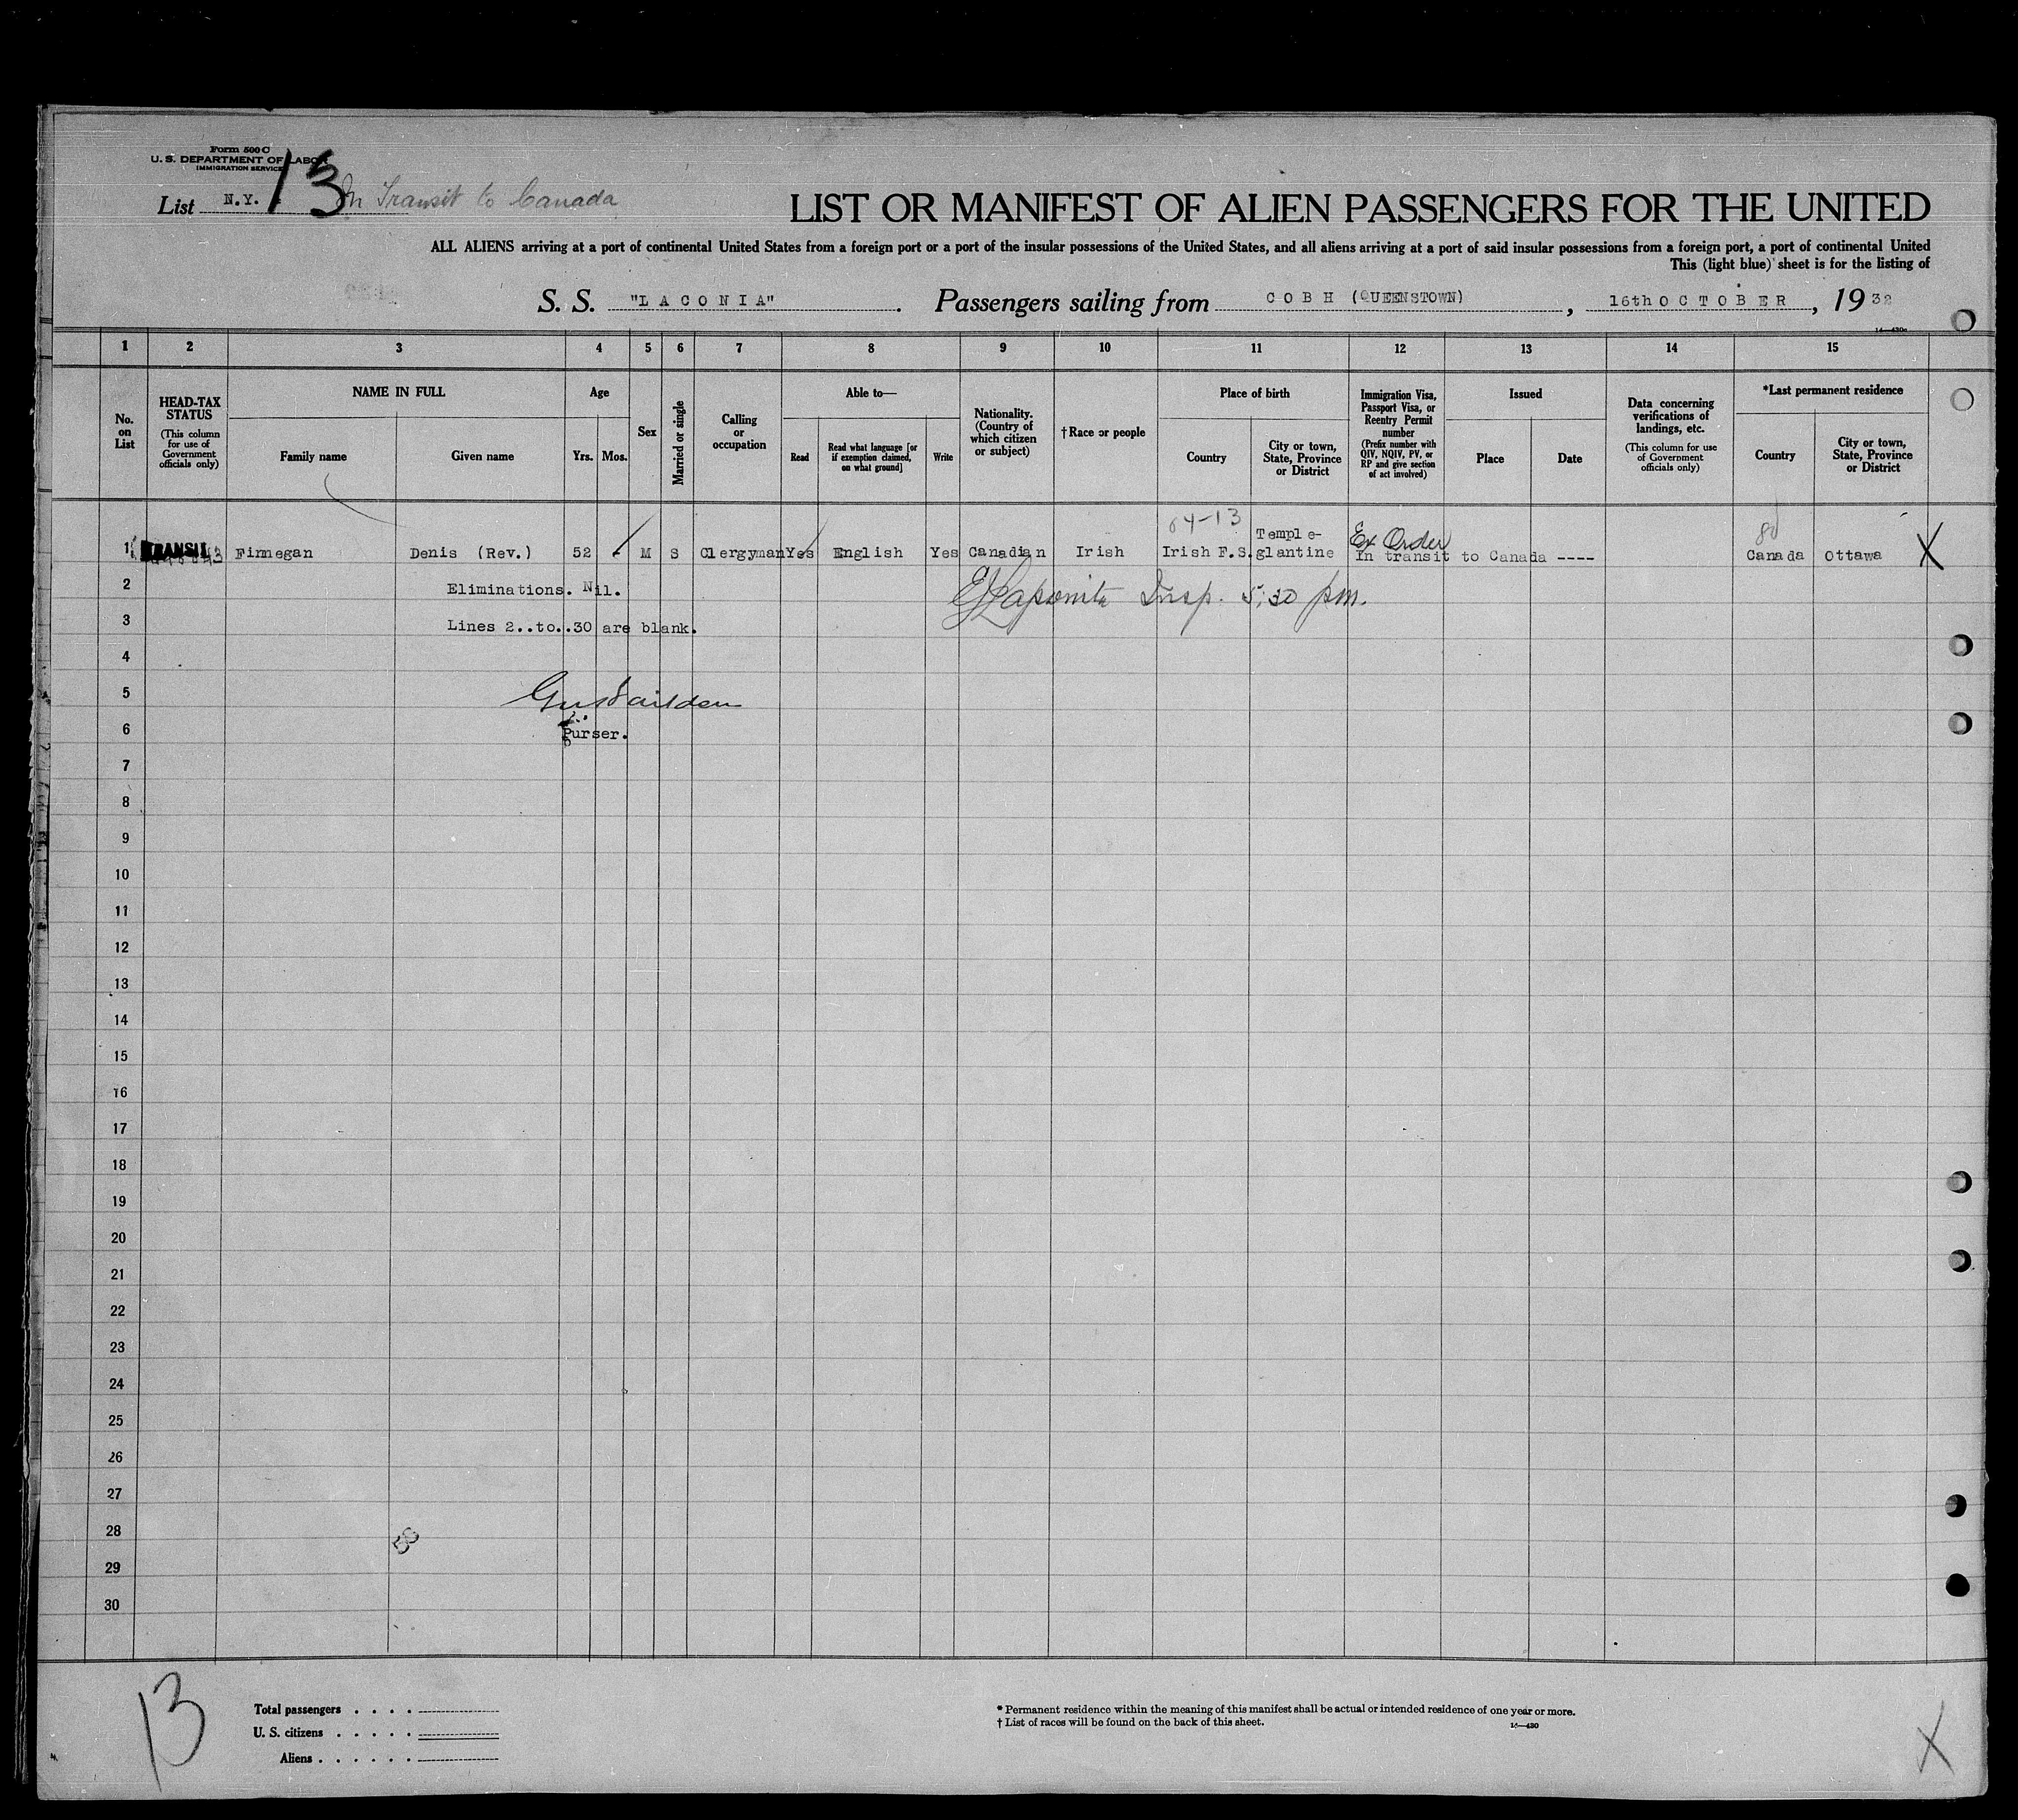 Form 500 C
U. S. DEPARTMENT OF LABOR
IMMIGRATION SERVICE
List N.Y. 13 In Transit to Canada
LIST OR MANIFEST OF ALIEN PASSENGERS FOR THE UNITED
ALL ALIENS arriving at a port of continental United States from a foreign port or a port of the insular possessions of the United States, and all aliens arriving at a port of said insular possessions from a foreign port, a port of continental United
This (light blue) sheet is for the listing of
S. S. "LACONIA". Passengers sailing from COBH (QUEENSTOWN), 16th OCTOBER, 1932
1 2 3 4 5 6 7 8 9 10 11 12 13 14 15
No. on List
HEAD-TAX STATUS
(This column for use of Government officials only)
NAME IN FULL
Family name
Given name
Age
Yrs. Mos.
Sex
Married or single
Calling or occupation
Able to—
Read
Read what language [or if exemption claimed, on what ground]
Write
Nationality. (Country of which citizen or subject)
†Race or people
Place of birth
Country
City or town, State, Province or District
Immigration Visa, Passport Visa, or Reentry Permit number
(Prefix number with QIV, NQIV, PV, or RP and give section of act involved)
Issued
Place
Date
Data concerning verifications of landings, etc.
(This column for use of Government officials only)
*Last permanent residence
Country
City or town, State, Province or District
64-13 Temple- Ex Order 80
1 TRANSIT Finnegan Denis (Rev.) 52 - M S Clergyman Yes English Yes Canadian Irish Irish F.S. glantine In transit to Canada ---- Canada Ottawa X
2 Eliminations. Nil. Insp. 5:30 pm.
3 Lines 2..to..30 are blank.
4
5
6 Purser.
7
8
9
10
11
12
13
14
15
16
17
18
19
20
21
22
23
24
25
26
27
28
29
30
13
Total passengers . . . .
U. S. citizens . . . . .
Aliens . . . . . .
* Permanent residence within the meaning of this manifest shall be actual or intended residence of one year or more.
† List of races will be found on the back of this sheet.
X